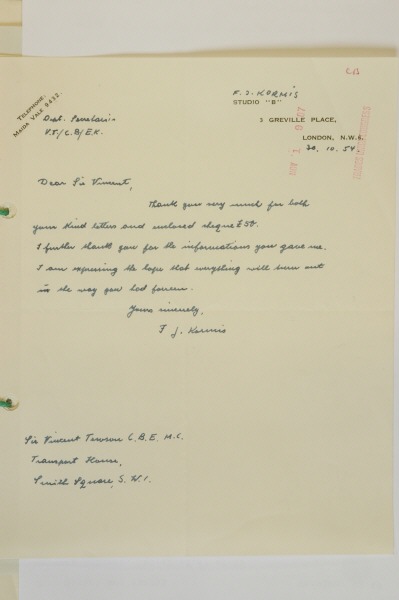 C.B
TELEPHONE:
MAIDA VALE 9432.
F. J. KORMIS
STUDIO "B"
3 GREVILLE PLACE,
LONDON, N.W.6.
30. 10. 54.
V.T/C.B/E.K.
Dear Sir Vincent,
Thank you very much for both
your kind letters and enclosed cheque £50.
I further thank you for the informations you gave me.
I am expressing the hope that everything will turn out
in the way you had forseen.
Yours sincerely,
F J. Kormis
Sir Vincent Tewson C.B.E. M.C.
Transport House,
Smith Square, S.W.1.